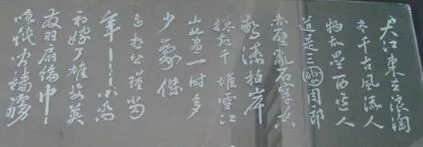 大江東去浪淘
尽千古風流人
物故垒西边人
道是三國周郎
赤壁亂石穿空
驚濤拍岸
捲起千堆雪江
山如畫一時多
少豪傑
遥想公瑾当
年——小喬
初嫁了雄姿英
发羽扇綸巾!
談笑间樯